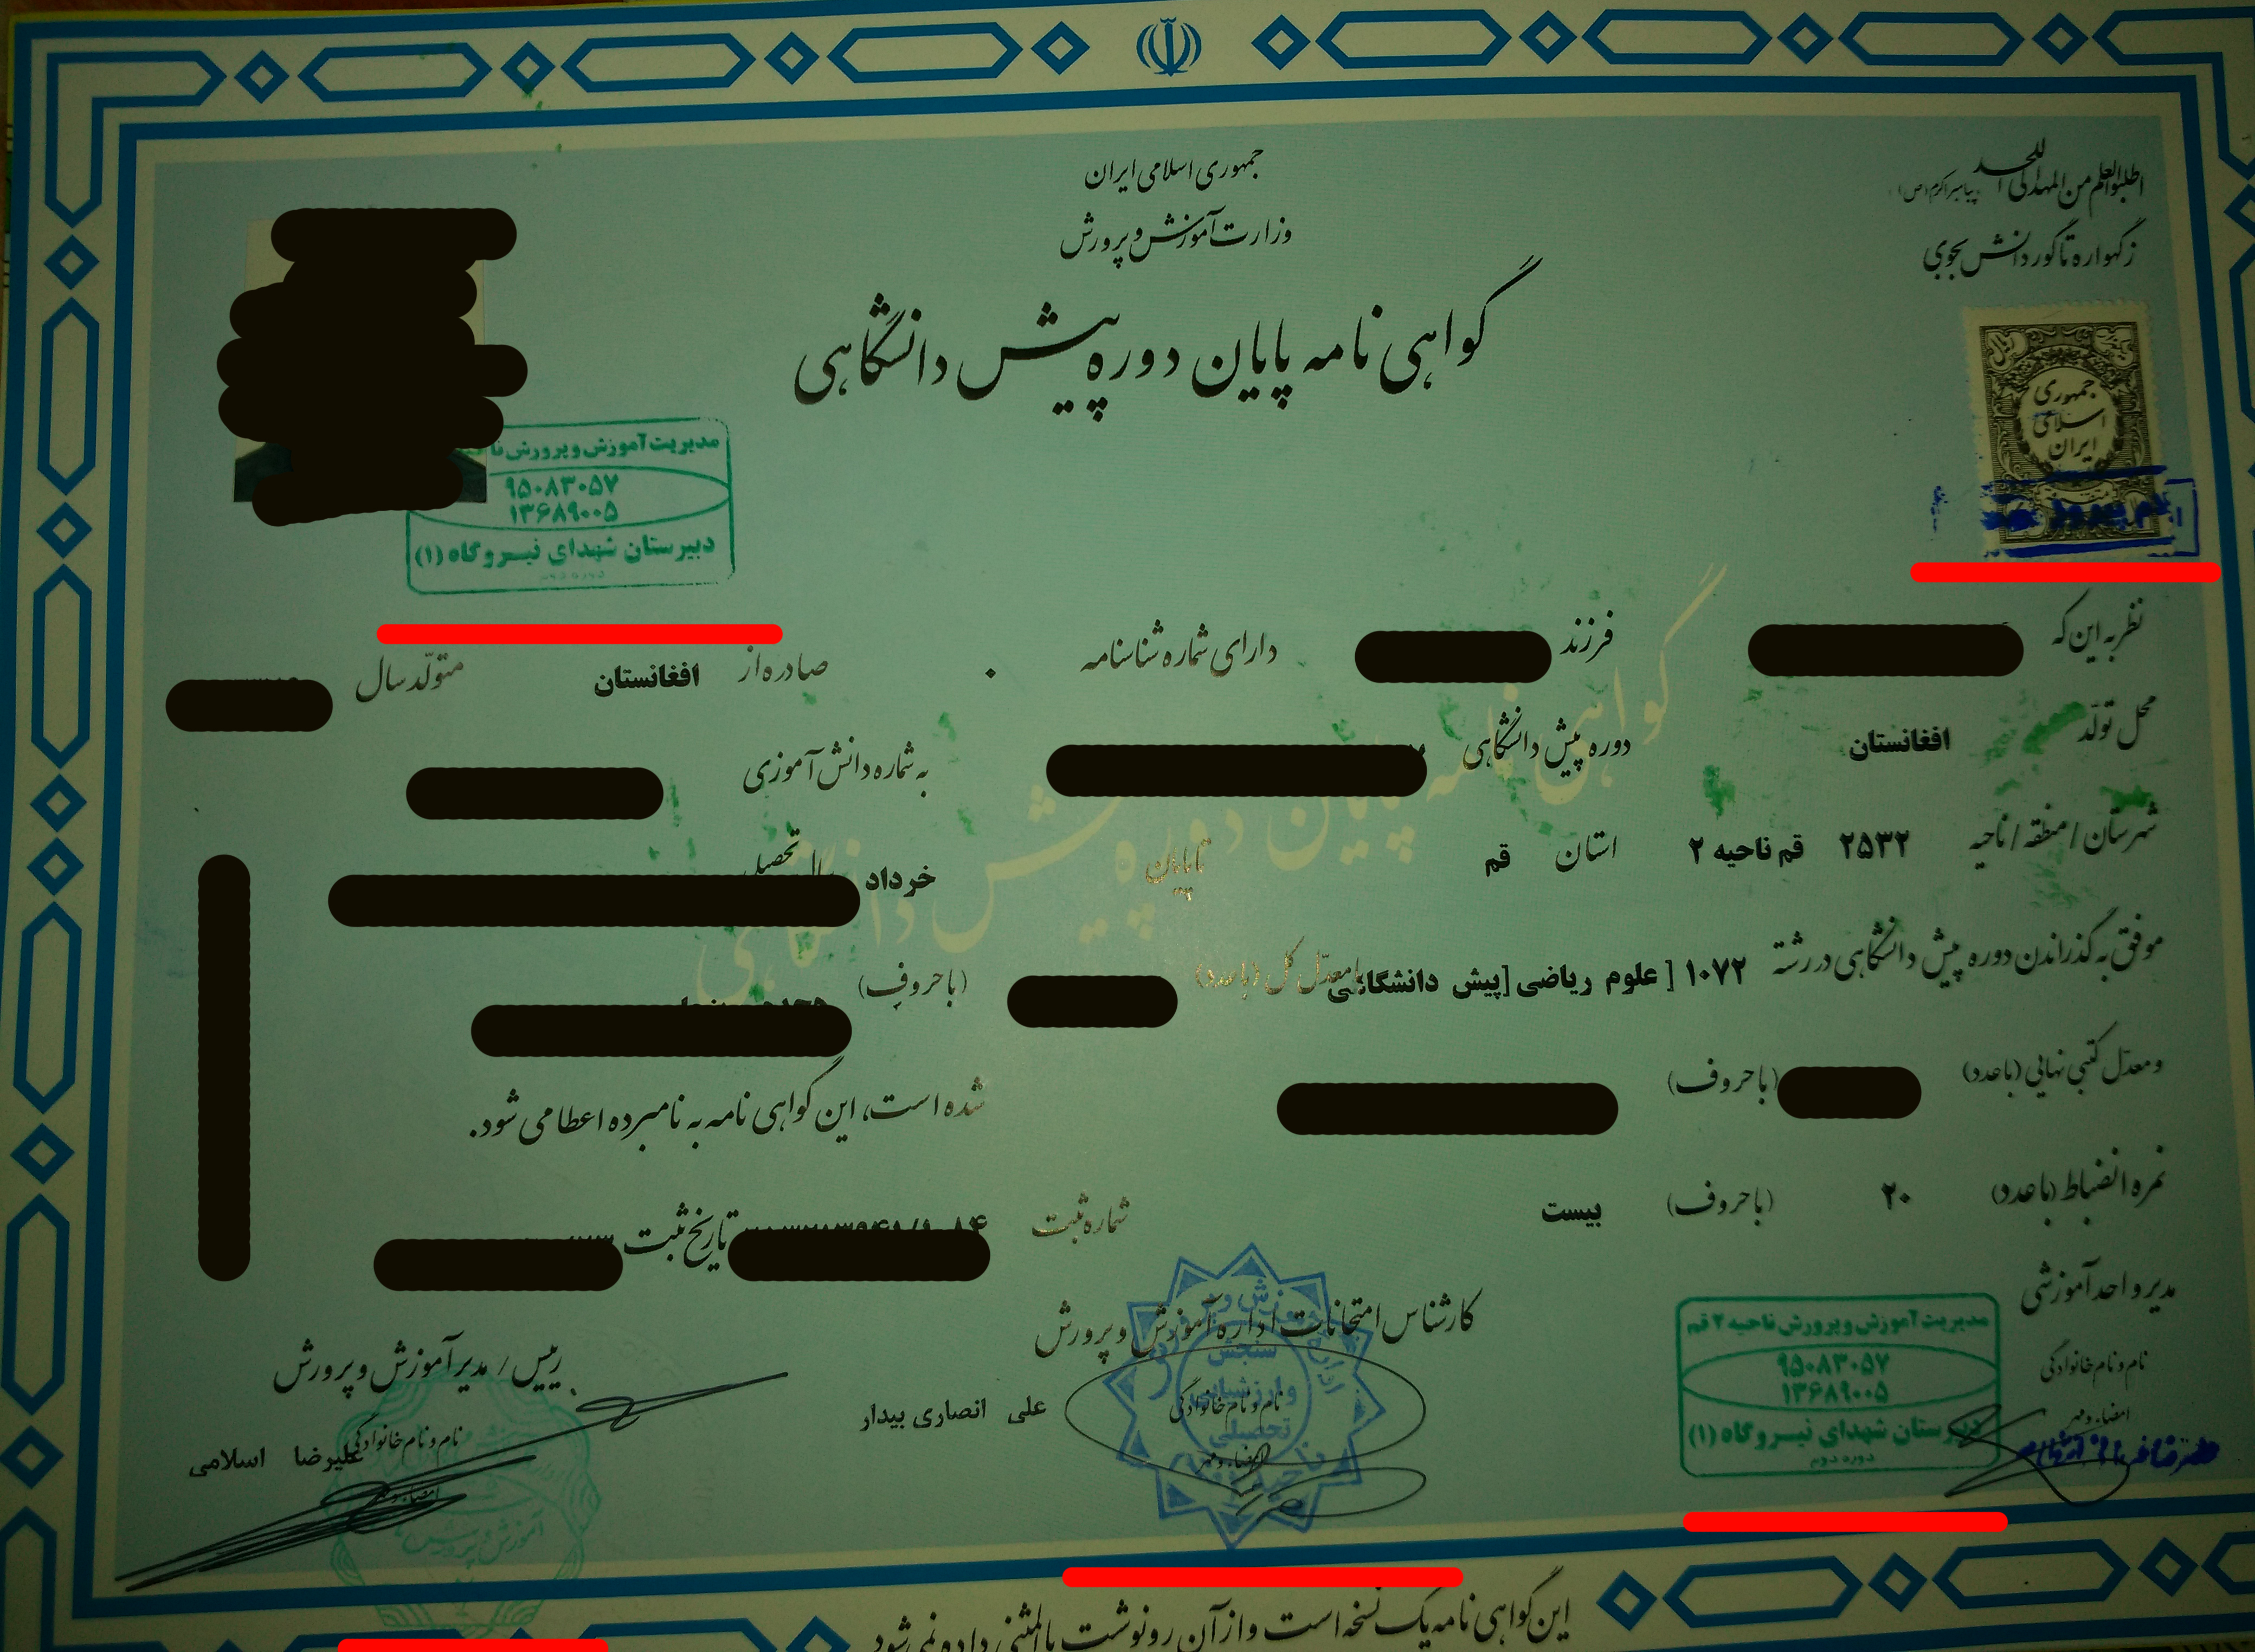 جمهوری اسلامی ایران
وزارت آموزش و پرورش
اطلبوا العلم من المهد الی اللحد
پیامبر اکرم (ص)
ز گهواره تا گور دانش بجوی
گواهی نامه پایان دوره پیش دانشگاهی
جمهوری
اسلامی
ایران
مدیریت آموزش و پرورش
۹۵۰۸۳۰۵۷
۱۳۶۸۹۰۰۵
دبیرستان شهدای نیروگاه (۱)
نظر به این که فرزند دارای شماره شناسنامه ۰ صادره از افغانستان متولد سال
محل تولد افغانستان دوره پیش دانشگاهی به شماره دانش آموزی
شهرستان / منطقه / ناحیه ۲۵۳۲ قم ناحیه ۲ استان قم تا پایان خرداد
موفق به گذراندن دوره پیش دانشگاهی در رشته ۱۰۷۲ [ علوم ریاضی [پیش دانشگاهی با معدل کل (با عدد) (با حروف)
و معدل کتبی نهایی (با عدد) (با حروف) شده است، این گواهی نامه به نامبرده اعطا می شود.
نمره انضباط (با عدد) ۲۰ (با حروف) بیست شماره ثبت تاریخ ثبت
مدیر واحد آموزشی
نام و نام خانوادگی
امضاء و مهر
مدیریت آموزش و پرورش ناحیه ۲ قم
۹۵۰۸۳۰۵۷
۱۳۶۸۹۰۰۵
دبیرستان شهدای نیروگاه (۱)
دوره دوم
کارشناس امتحانات اداره آموزش و پرورش
نام و نام خانوادگی علی انصاری بیدار
امضاء و مهر
سنجش
و ارزشیابی
تحصیلی
رییس / مدیر آموزش و پرورش
نام و نام خانوادگی علیرضا اسلامی
امضاء و مهر
آموزش و پرورش
این گواهی نامه یک نسخه است و از آن رونوشت یا المثنی داده نمی شود
گواهی نامه پایان دوره پیش دانشگاهی